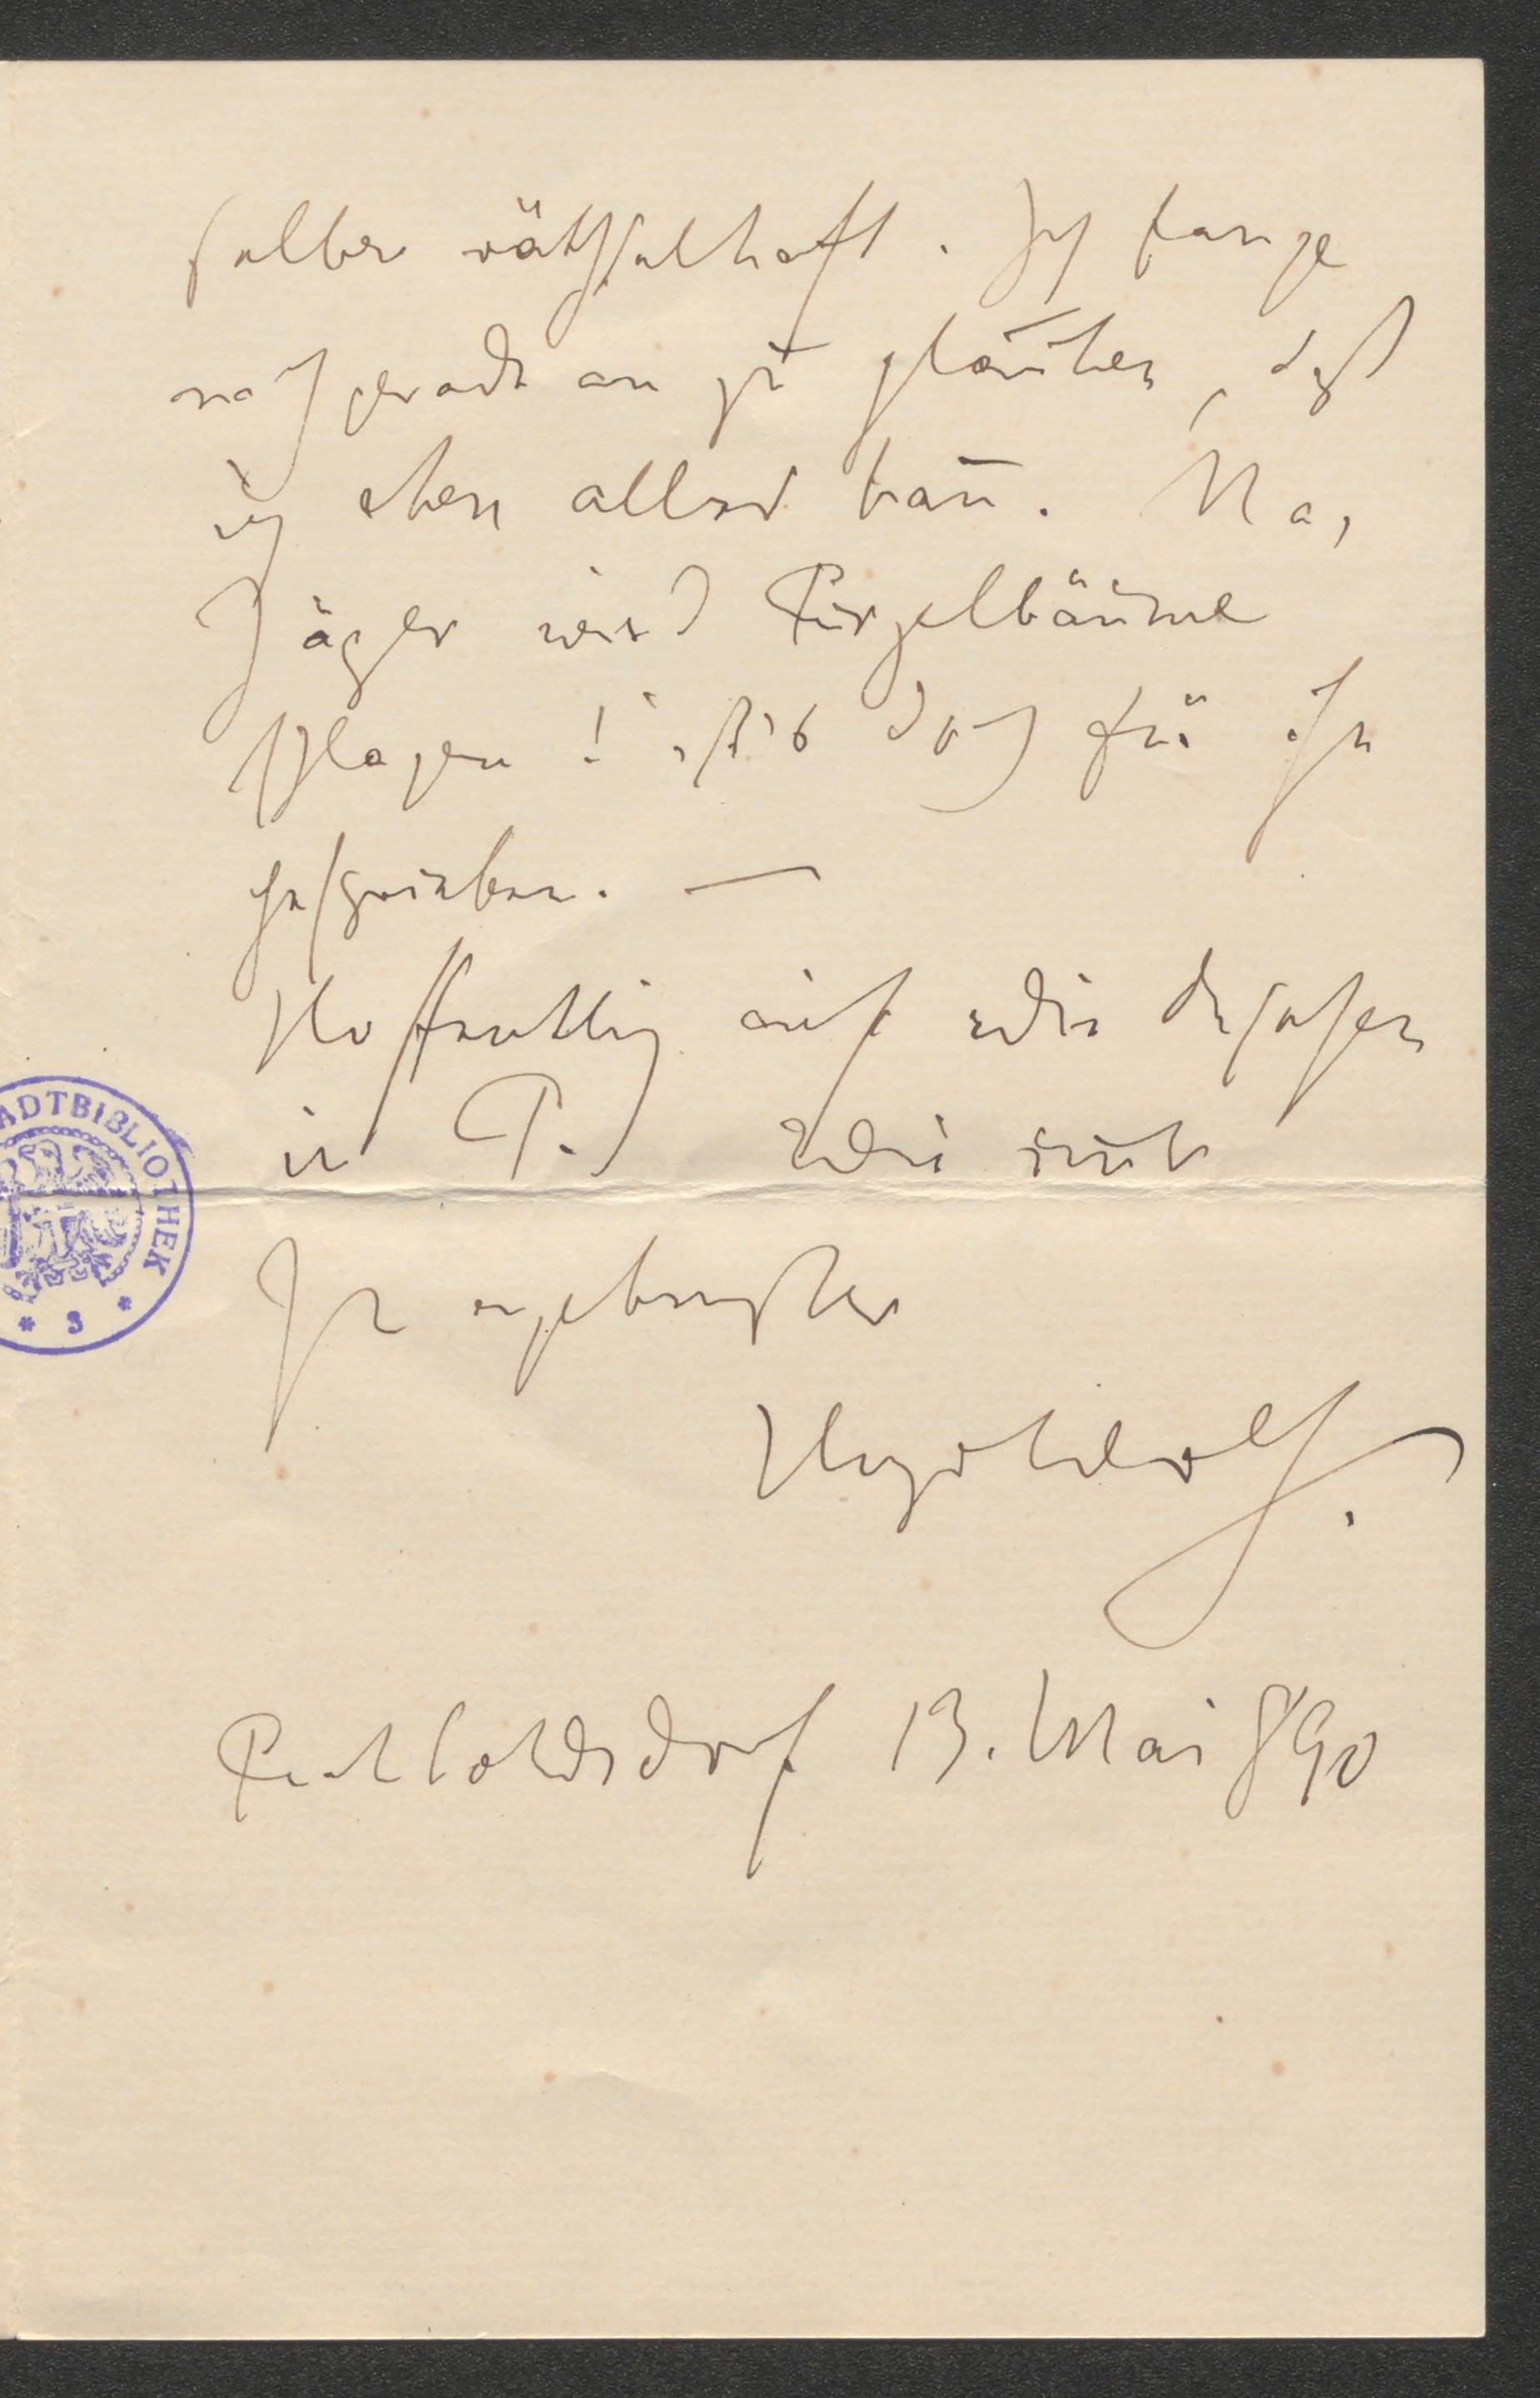 selber räthselhaft. Ich fange
nachgerade an zu glauben, daß
ich eben alles kañ. Na,
Jäger wird Purzelbäume
schlagen! ist's doch für Ihn
geschrieben. —
Hoffentlich auf Wiedersehen
in P.
Ihr ergebenster
HugoWolf.
Perchtoldsdorf 13. Mai 890
STADTBIBLIOTHEK
* 3 *